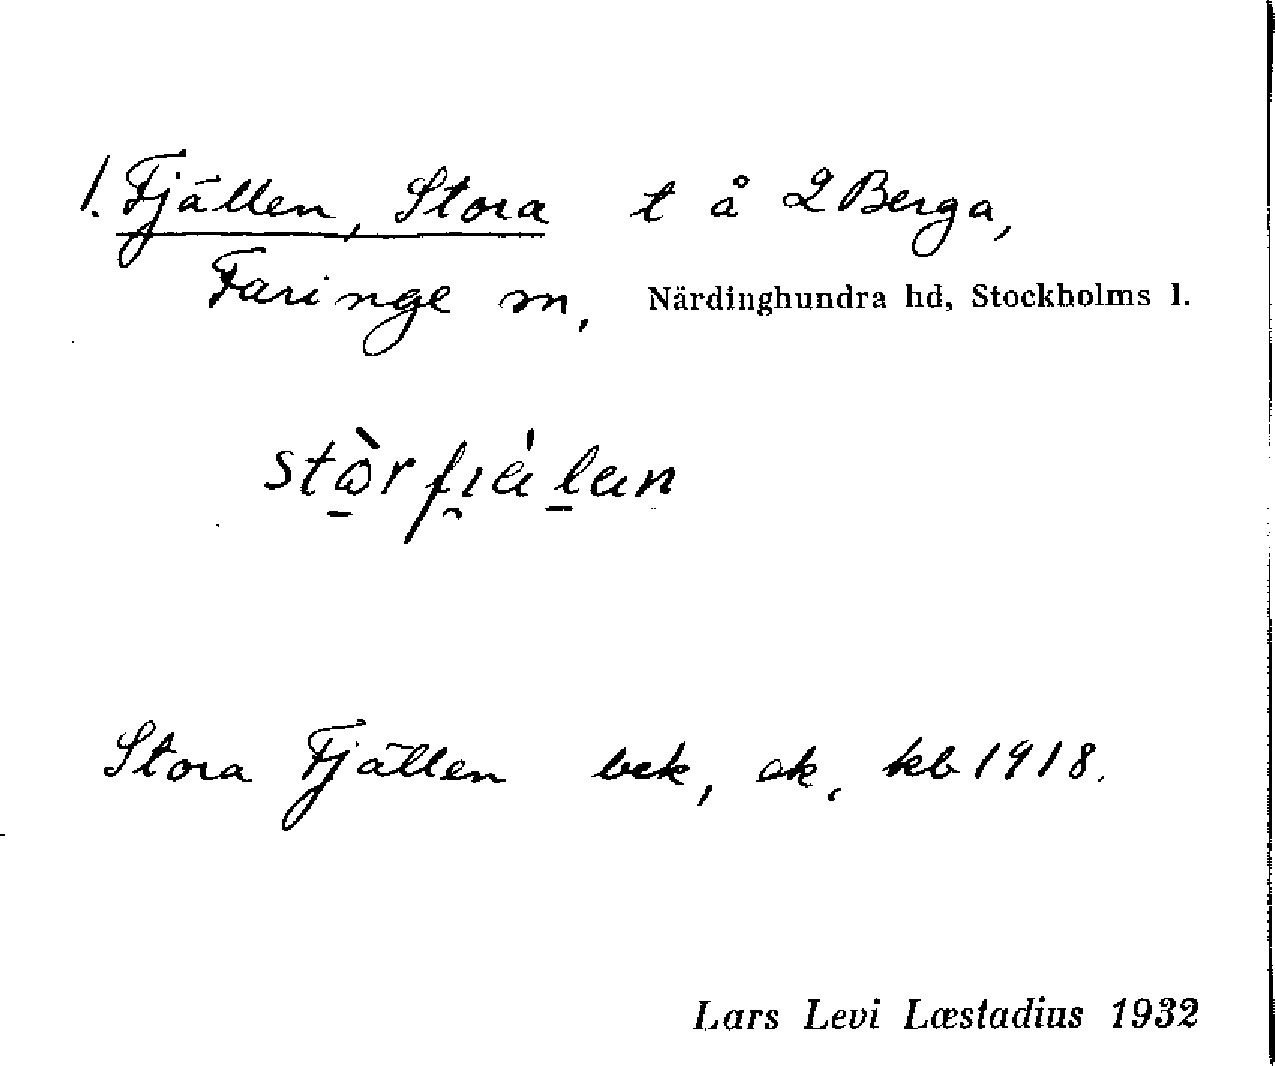 1. Fjällen, Stora t å 2 Berga,
Faringe m, Närdinghundra hd, Stockholms l.
Stora Fjällen bek, ek, kb 1918.
Lars Levi Læstadius 1932